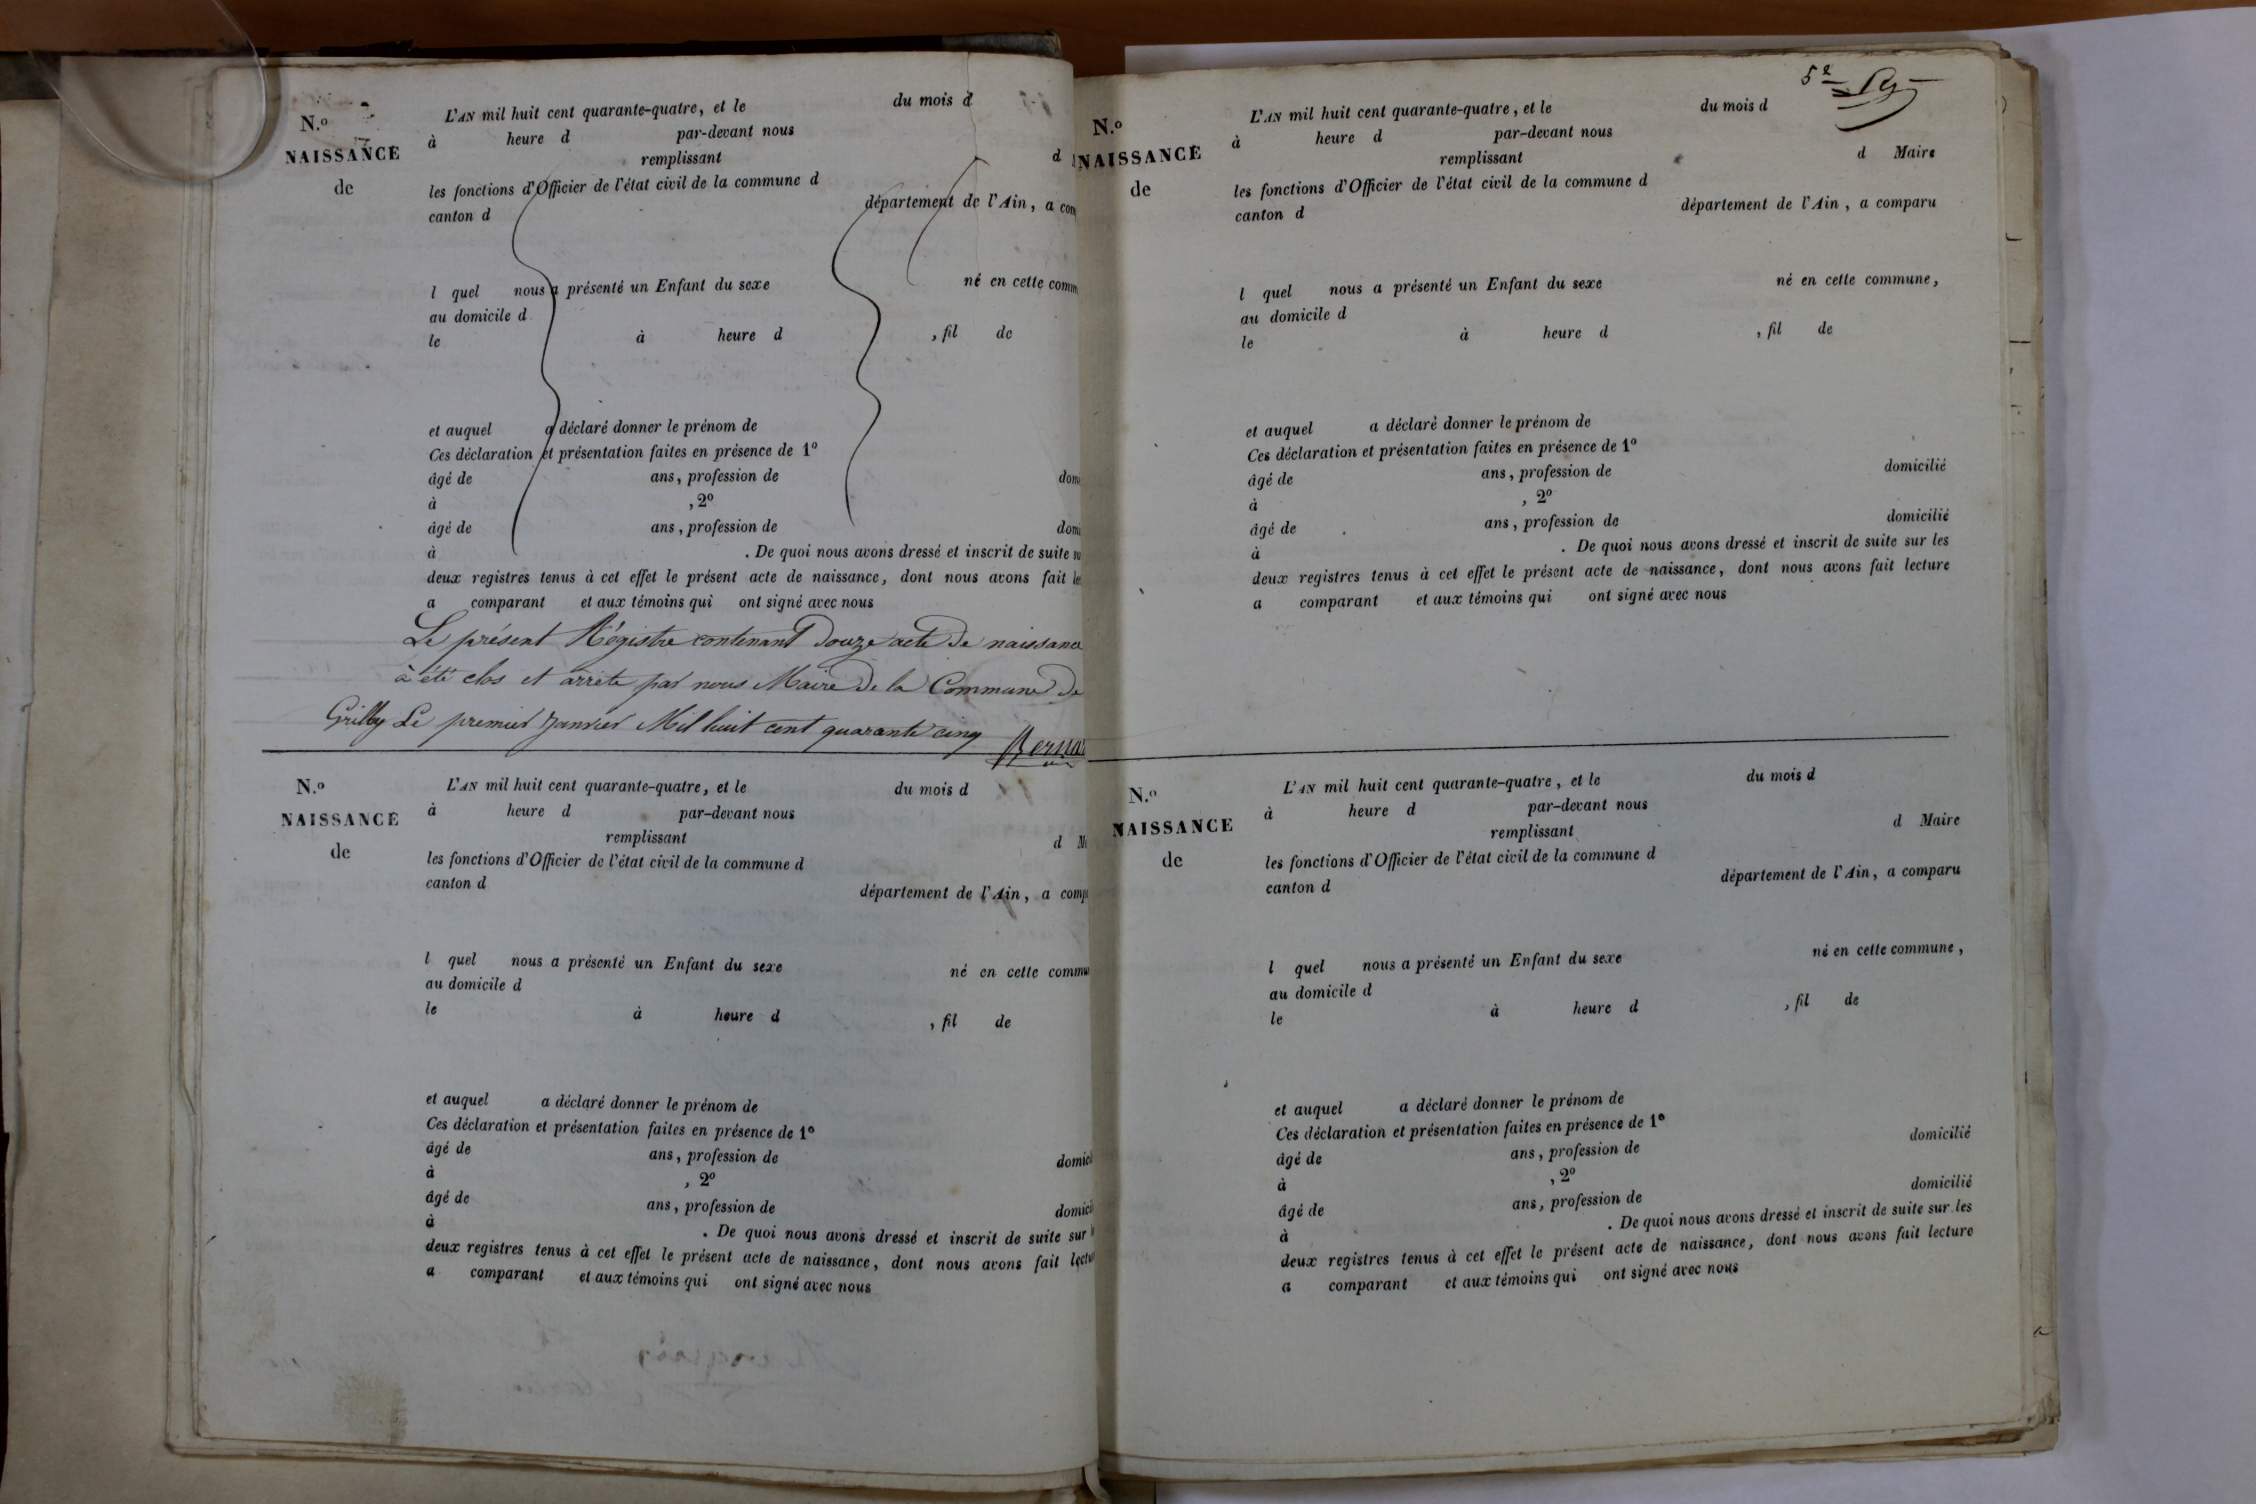 N.º
NAISSANCE
de
L'AN mil huit cent quarante-quatre, et le du mois d
à heure d par-devant nous
remplissant d
les fonctions d'Officier de l'état civil de la commune d
canton d département de l'Ain, a com
l quel nous a présenté un Enfant du sexe né en cette comm
au domicile d
le à heure d , fil de
et auquel a déclaré donner le prénom de
Ces déclaration et présentation faites en présence de 1º
âgé de ans, profession de dom
à , 2º
âgé de ans, profession de domi
à . De quoi nous avons dressé et inscrit de suite su
deux registres tenus à cet effet le présent acte de naissance, dont nous avons fait le
a comparant et aux témoins qui ont signé avec nous
Le présent Régistre contenant douze acte de naissance
à été clos et arrête par nous Maire de la Commune de
Grilly Le premier Janvier Mil huit cent quarante cinq
Bernar
N.º
NAISSANCE
de
L'AN mil huit cent quarante-quatre, et le du mois d
à heure d par-devant nous
remplissant d M
les fonctions d'Officier de l'état civil de la commune d
canton d département de l'Ain, a comp
l quel nous a présenté un Enfant du sexe né en cette commu
au domicile d
le à heure d , fil de
et auquel a déclaré donner le prénom de
Ces déclaration et présentation faites en présence de 1º
âgé de ans, profession de domici
à , 2º
âgé de ans, profession de domici
à . De quoi nous avons dressé et inscrit de suite sur l
deux registres tenus à cet effet le présent acte de naissance, dont nous avons fait lectu
a comparant et aux témoins qui ont signé avec nous
5e
N.º
NAISSANCE
de
L'AN mil huit cent quarante-quatre, et le du mois d
à heure d par-devant nous
remplissant d Maire
les fonctions d'Officier de l'état civil de la commune d
canton d département de l'Ain, a comparu
l quel nous a présenté un Enfant du sexe né en cette commune,
au domicile d
le à heure d , fil de
et auquel a déclaré donner le prénom de
Ces déclaration et présentation faites en présence de 1º
âgé de ans, profession de domicilié
à , 2º
âgé de ans, profession de domicilié
à . De quoi nous avons dressé et inscrit de suite sur les
deux registres tenus à cet effet le présent acte de naissance, dont nous avons fait lecture
a comparant et aux témoins qui ont signé avec nous
N.º
NAISSANCE
de
L'AN mil huit cent quarante-quatre, et le du mois d
à heure d par-devant nous
remplissant d Maire
les fonctions d'Officier de l'état civil de la commune d
canton d département de l'Ain, a comparu
l quel nous a présenté un Enfant du sexe né en cette commune,
au domicile d
le à heure d , fil de
et auquel a déclaré donner le prénom de
Ces déclaration et présentation faites en présence de 1º
âgé de ans, profession de domicilié
à , 2º
âgé de ans, profession de domicilié
à . De quoi nous avons dressé et inscrit de suite sur les
deux registres tenus à cet effet le présent acte de naissance, dont nous avons fait lecture
a comparant et aux témoins qui ont signé avec nous